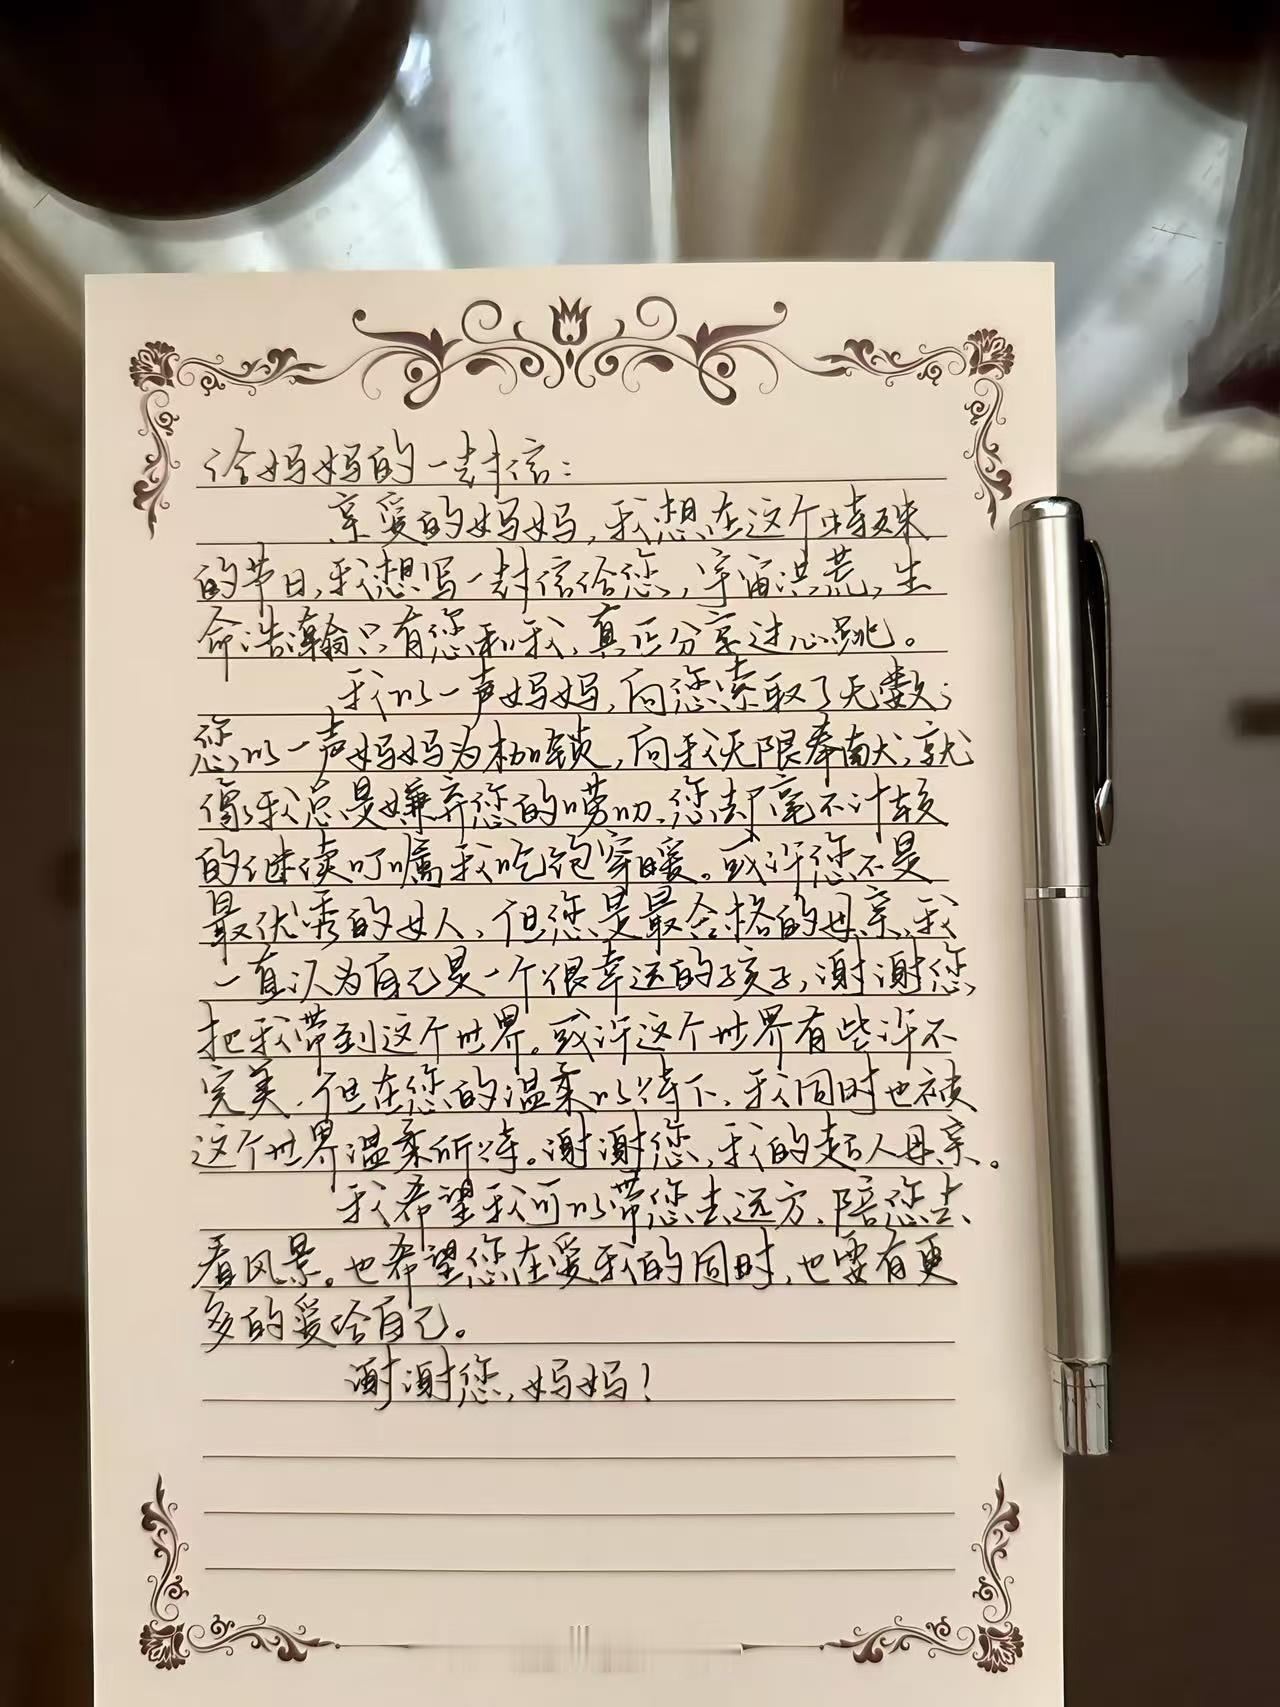 给妈妈的一封信:
亲爱的妈妈,我想在这个特殊
的节日,我想写一封信给您,宇宙洪荒,生
命浩瀚只有您和我,真正分享过心跳。
我以一声妈妈,向您索取了无数;
您以一声妈妈为枷锁,向我无限奉献,就
像我总是嫌弃您的唠叨、您却毫不计较
的继续叮嘱我吃饱穿暖。或许您不是
最优秀的女人,但您是最合格的母亲,我
一直认为自己是一个很幸运的孩子,谢谢您,
把我带到这个世界。或许这个世界有些许不
完美,但在您的温柔以待下,我同时也被
这个世界温柔所待。谢谢您,我的超人母亲。
我希望我可以带您去远方、陪您去
看风景。也希望您在爱我的同时,也要有更
多的爱给自己。
谢谢您,妈妈!